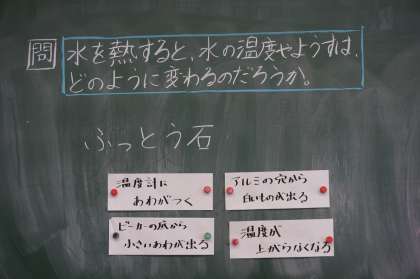 問
水を熱すると、水の温度やようすは、
どのように変わるのだろうか。
ふっとう石
温度計に
あわがつく
アルミの穴から
白いものが出る
ビーカーの底から
小さいあわが出る
温度が
上がらなくなる